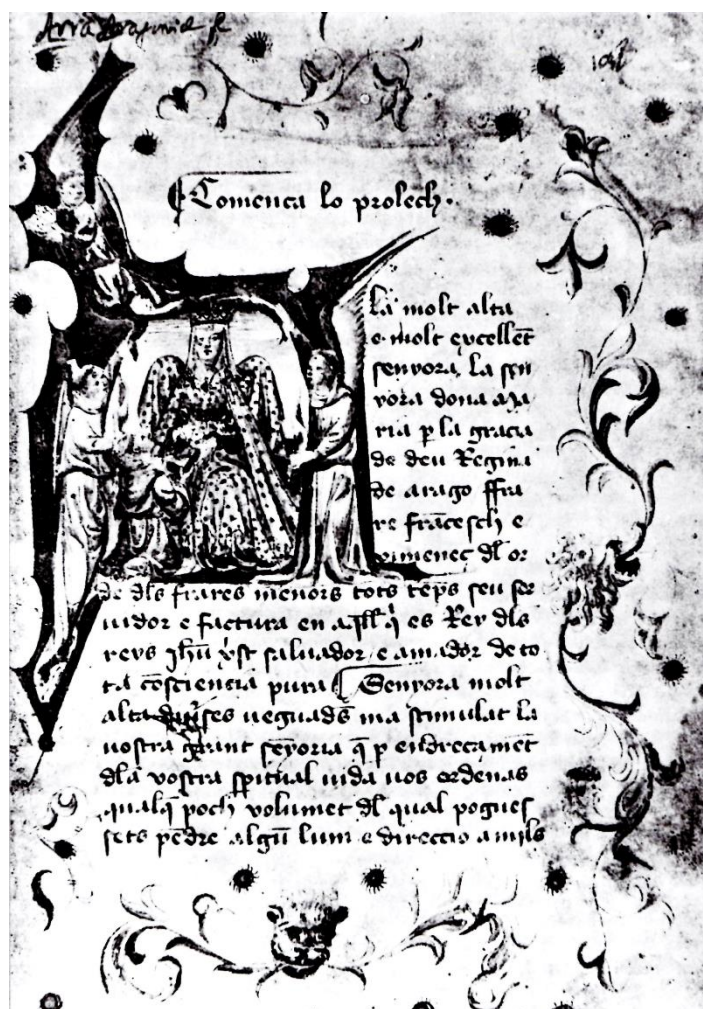 ¶ Comença lo prolech.
la molt alta
e molt excellēt
senyora, la sen
yora dona Ma
ria p la gracia
de deu Regina
de arago ffra
re frācesch e
ximeneç dl or
de dls frares menors tots tēps seu ser
uidor e factura en aqll q es Rey dls
reys ihū xst saluador e amador de to
ta cōsciencia pura ¶ Senyora molt
alta diuses ueguads ma stimulat la
uostra grant senyoria q p endreçamēt
dla vostra spiritual uida uos ordenas
qualq poch volumet dl qual pogues
sets pēdre algū lum e direccio a mils